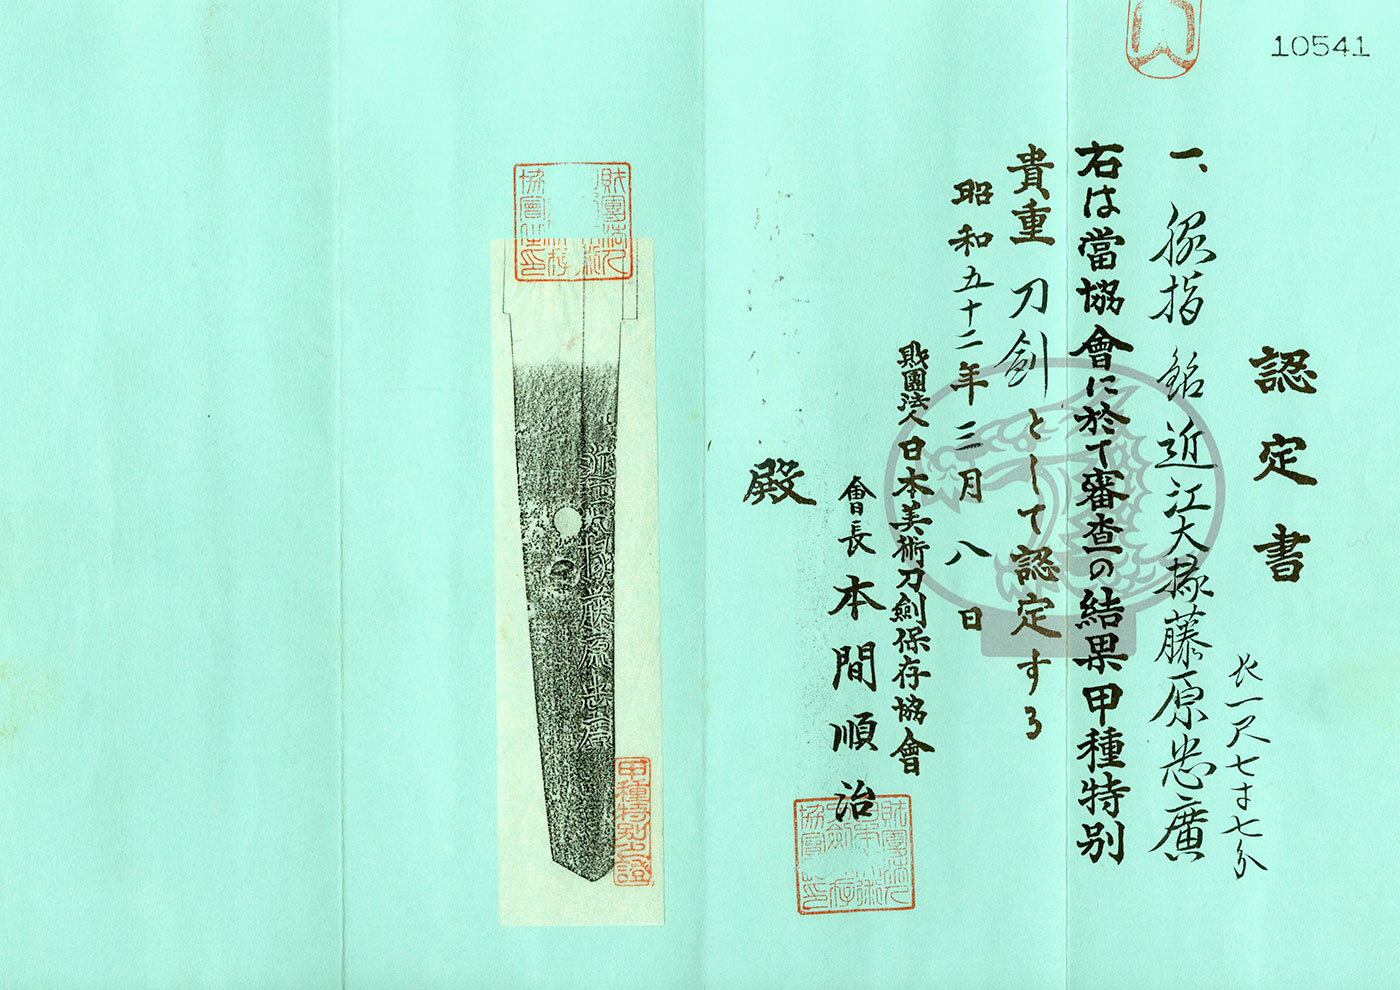 10541
認定書
一、脇指 銘 近江大掾藤原忠廣
長一尺七寸七分
右は當協會に於て審査の結果甲種特別
貴重刀劍として認定する
昭和五十二年三月八日
財團法人日本美術刀劍保存協會
會長 本間順治
殿
近江大掾藤原忠廣
甲種特別之證